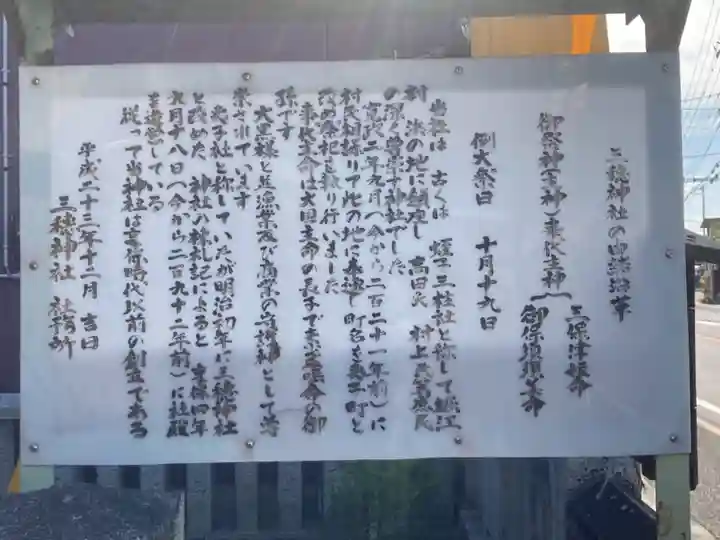 三穂神社の由緒沿革
御祭神(主神)事代主神{
三保津姫命
御保須須美命
例大祭日 十月十九日
当社は 古くは 蛭子三柱社と称して
村 浜の地に鎮座し 高田氏 村上氏
の深く尊崇する神社でした
寛政二年九月(今から二百二十一年前)に
村民相様りて此の地に奉遷し町名を恵比町と
改め祭祀を執り行いました
事代主命は大国主命の長子で素盞嗚命の御
孫です
大黒様と並漁業及び商業の守護神として
祭されています
夷子社と称していたが明治初年に三穂神社
と改めた 神社の棟札記によると 享保四年
九月十八日(今から二百九十二年前)に社殿
を造営している
従って当神社は享保時代以前の創立である
平成二十三年十二月 吉日
三穂神社 社務所